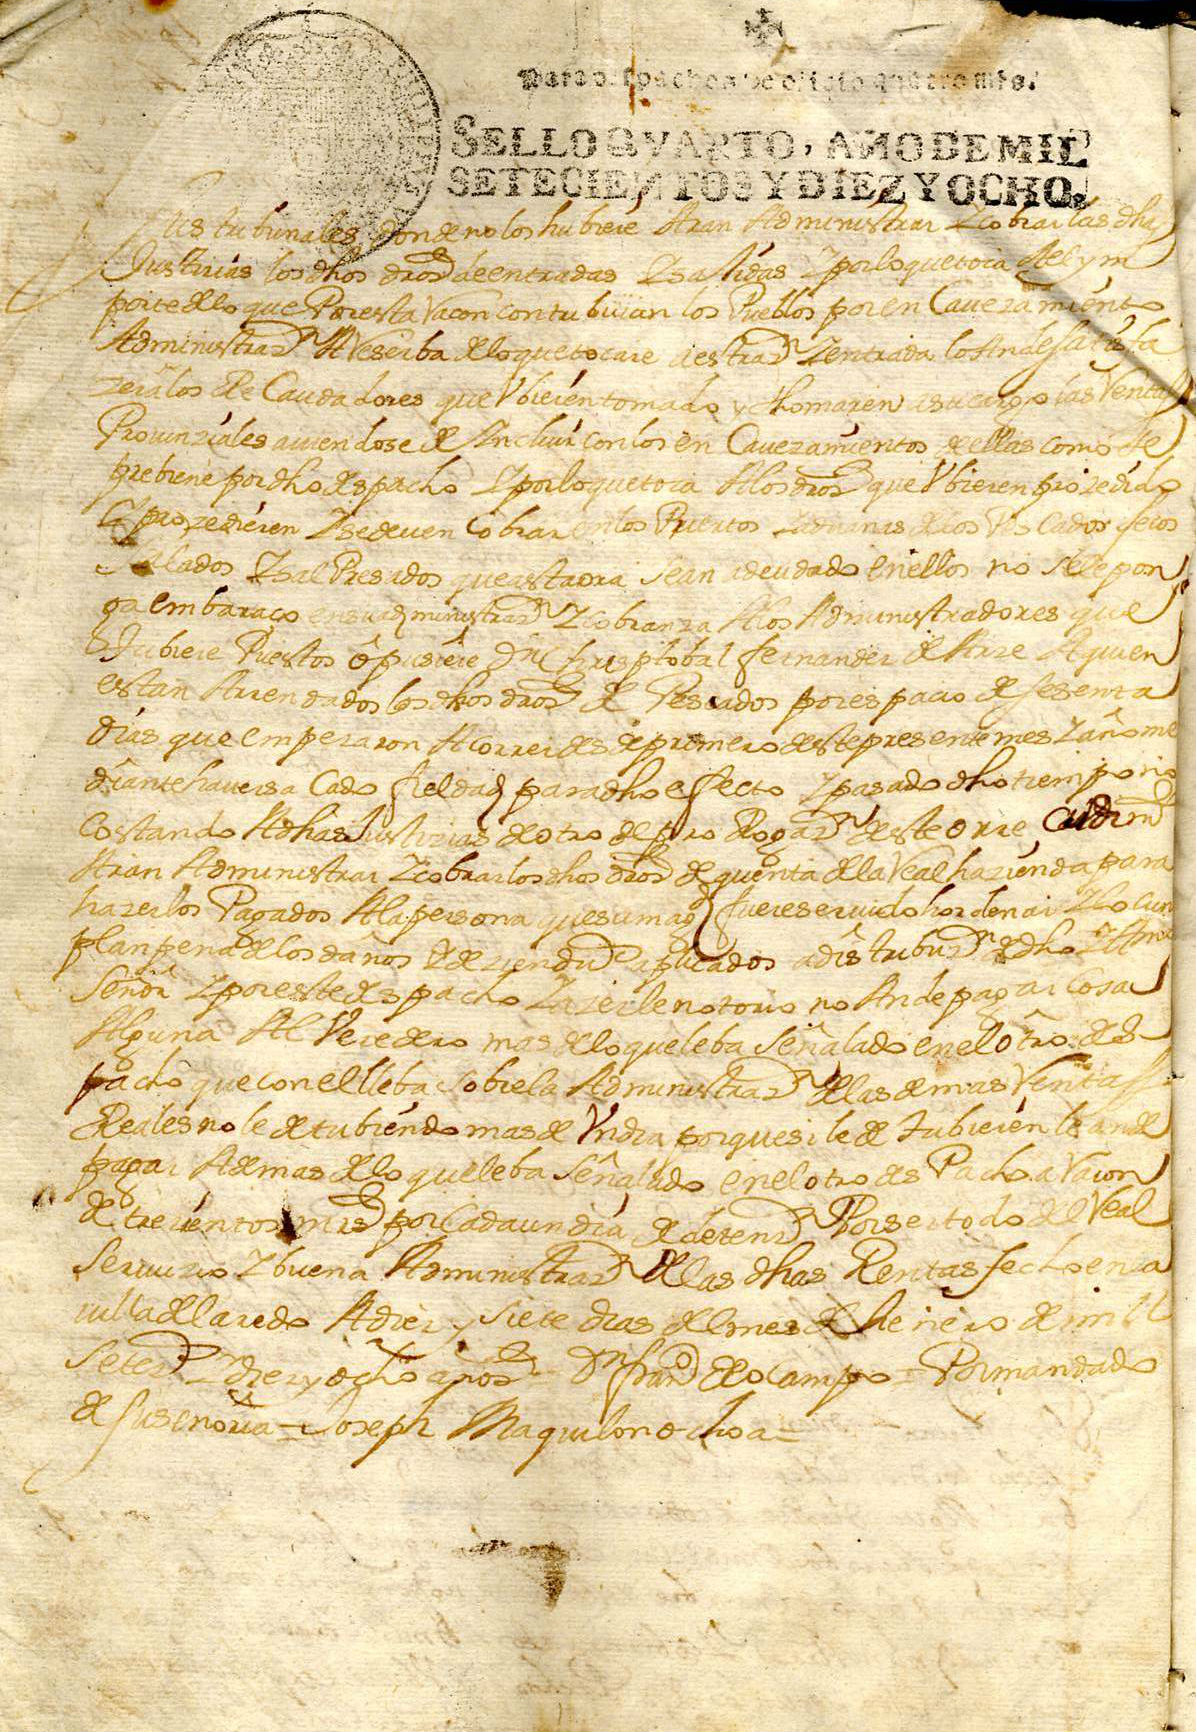 Para despachos de oficio quatro mrs.
SELLO QVARTO, AÑO DE MIL
SETECIENTOS Y DIEZ Y OCHO.
tribunales donde no los hubiere Aran Administrar Z cobrar las dhas
Justizias los dhos dros de entradas Z salidas Z por lo que toca Al ym
porte de lo que Por esta Racon contribuian los Pueblos por en Cavezamiento
Administrazn A Reserba de lo que tocare a estrazn Z entrada lo An de satisfa
zer a los Re Caudadores que Vbieren tomado y thomaren a su cargo las Rentas
Provinziales aviendose de Yncluir con los en Cavezamientos de ellas como se
prebiene por dho despacho Z por lo que toca A los dros que Vbieren prozedido
Z prozedieren Z se deven cobrar en los Puertos Z aduanas de los Pescados frescos
Salados Z sal Presados que asta ora sean adeudado en ellos no se le pon
ga embaraço en su administrazn Z cobranza A los Administradores que
Hubiere Puestos o pusiere Dn Chrisptobal fernandez de Arze A quien
estan Arrendados los dhos dros de Pescados por espacio de sesenta
dias que empezaron A correr desde primero deste presente mes Z año me
diante haver sa Cado fieldad para dho efecto Z pasado dho tiempo no
Costando A dhas Justizias de otro de pro Rogazn deste
Aran Administrar Z cobrar los dhos dros de quenta de la Real hazienda para
hazerlos Pagados A la persona que su magd fuere servido hordenar Z lo cun
plan pena de los daños Z de zien duos aplicados a distribuzn de dho
Señor Z por este despacho Z azerle notorio no An de pagar Cosa
Alguna Al Veredero mas de lo que leba Señalado en el otro des
pacho que con el lleba sobre la Administrazn de las demas Rentas
Reales no le detubiendo mas de Vn dia porque si le detubieren le an de
pagar Ademas de lo que leba Señalado en el otro des Pacho a Racon
de trezientos mrs por Cada un dia de detenzn Por ser todo del Real
Servizio Z buena Administrazn de las dhas Rentas fecho en la
villa de laredo A diez y siete dias del mes de henero de mill
setezs Z diez y ocho años = Dn franco de ocampo = Por mandado
de su señoria = Joseph Maquilon ochoa =